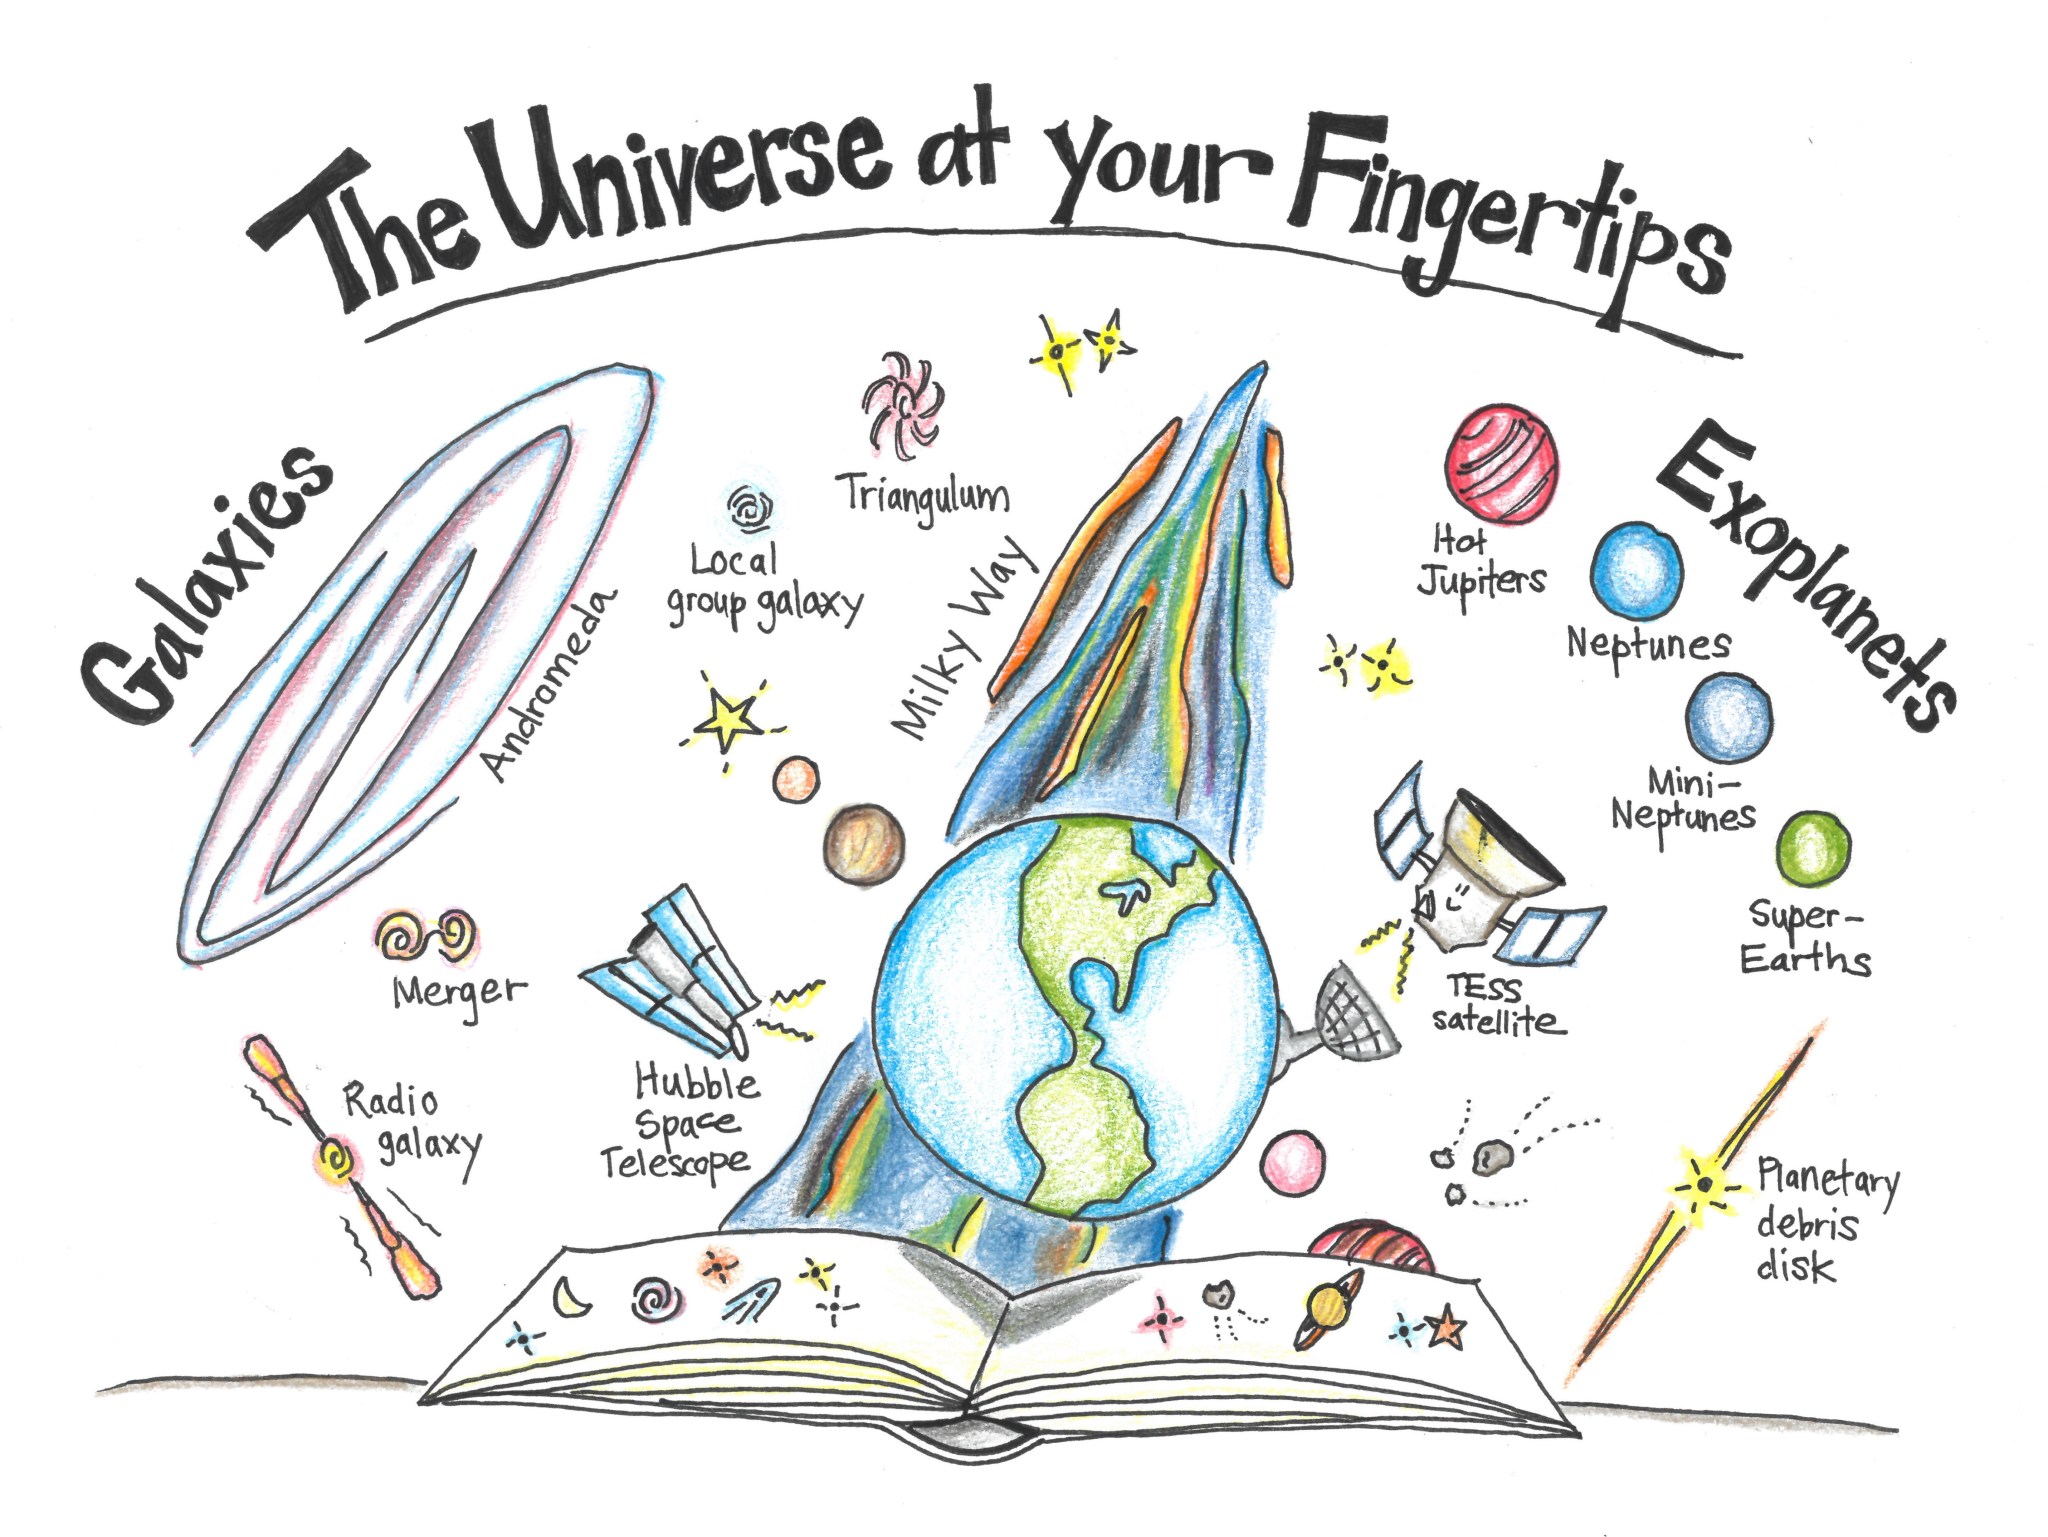 The Universe at your Fingertips
Galaxies
Andromeda
Local
group galaxy
Triangulum
Milky Way
Merger
Radio
galaxy
Hubble
Space
Telescope
Exoplanets
Hot
Jupiters
Neptunes
Mini-
Neptunes
Super-
Earths
TESS
satellite
Planetary
debris
disk